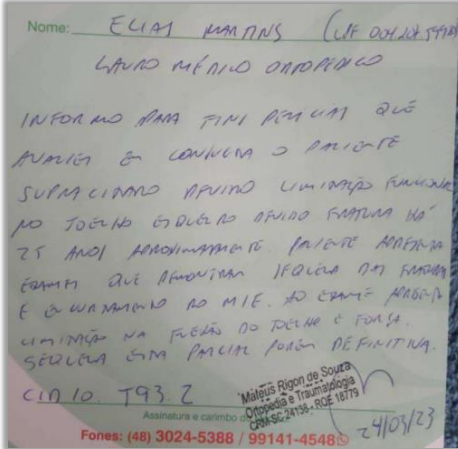 Nome: ELIAS MARTINS (CPF
LAUDO MÉDICO ORTOPEDICO
INFORMO PARA FINS PERICIAS QUE
AVALIEI EM CONSULTA O PACIENTE
SUPRACITADO DEVIDO LIMITAÇÃO FUNCIONAL
NO JOELHO ESQUERDO DEVIDO FRATURA HÁ
25 ANOS APROXIMADAMENTE. PACIENTE APRESENTA
EXAMES QUE DEMONSTRAM SEQUELA DAS FRATURAS
E ENCURTAMENTO DO MIE. AO EXAME APRESENTA
LIMITAÇÃO NA FLEXÃO DO JOELHO E FORÇA.
SEQUELA ESTA PARCIAL POREM DEFINITIVA.
CID 10. T93.2
Mateus Rigon de Souza
Ortopedia e Traumatologia
CRM-SC 24138 - RQE 18779
Assinatura e carimbo do
24/03/23
Fones: (48) 3024-5388 / 99141-4548